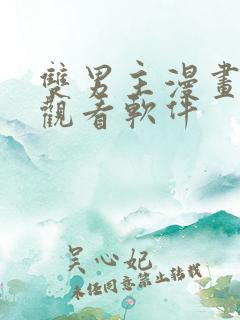 雙男主漫畫
觀看軟件
吴心妃
未经同意禁止转载